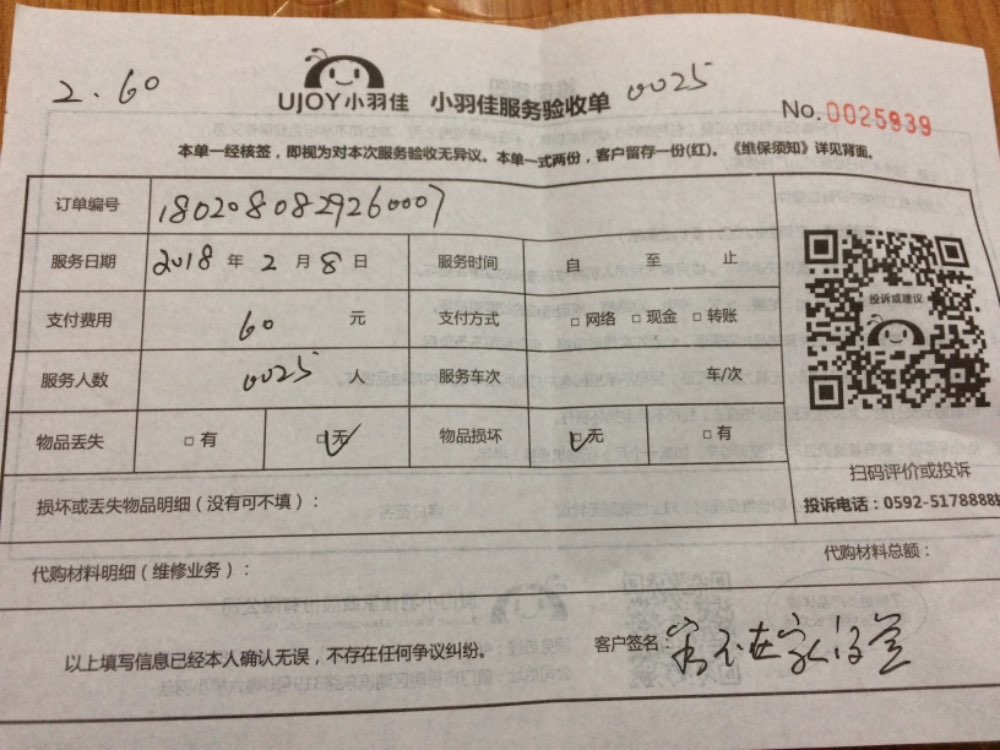 2.60
UJOY小羽佳 小羽佳服务验收单 0025
No.0025939
本单一经核签，即视为对本次服务验收无异议。本单一式两份，客户留存一份(红)。《维保须知》详见背面。
订单编号 1802080829260007
服务日期 2018 年 2 月 8 日 服务时间 自 至 止
支付费用 60 元 支付方式 □网络 □现金 □转账
投诉或建议
服务人数 0025 人 服务车次 车/次
物品丢失 □有 □无 物品损坏 □无 □有
扫码评价或投诉
损坏或丢失物品明细（没有可不填）：
投诉电话：0592-5178888
代购材料明细（维修业务）：
代购材料总额：
以上填写信息已经本人确认无误，不存在任何争议纠纷。
客户签名 客不在家代签